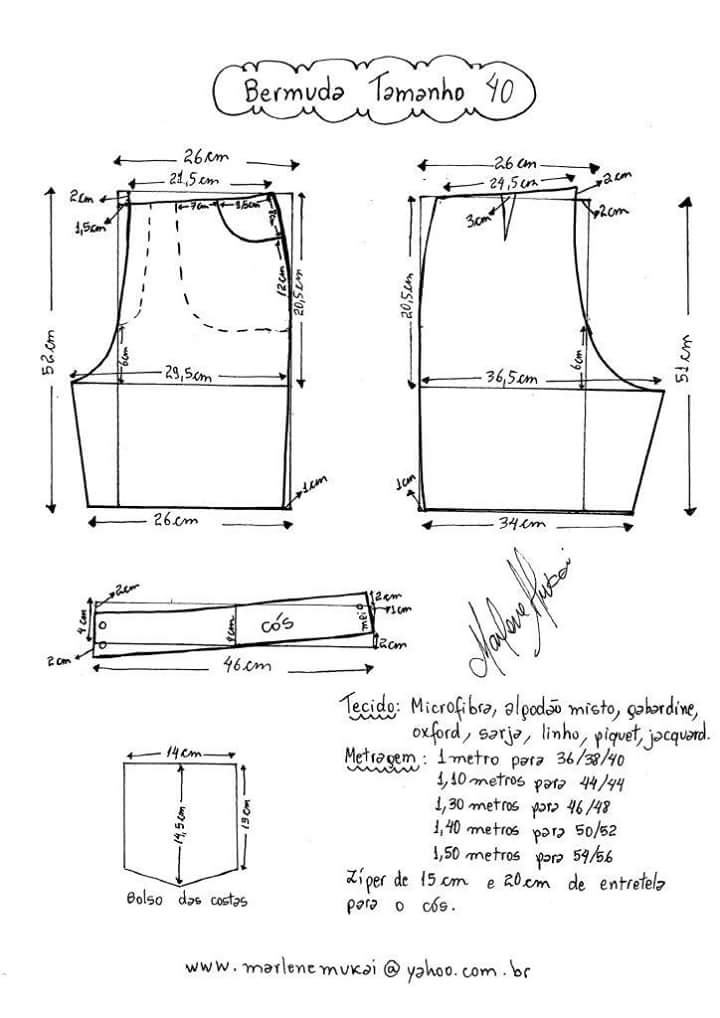 Bermuda Tamanho 40
26cm
21,5cm
2cm
1,5cm
7cm
9,5cm
12cm
20,5cm
52cm
6cm
29,5cm
1cm
26cm
26cm
24,5cm
2cm
2cm
3cm
20,5cm
6cm
51cm
36,5cm
1cm
34cm
2cm
4cm
2cm
cós
meio
2cm
1cm
2cm
46cm
Marlene Mukai
Tecido: Microfibra, algodão misto, gabardine,
oxford, sarja, linho, piquet, jacquard.
Metragem: 1 metro para 36/38/40
1,10 metros para 44/44
1,30 metros para 46/48
1,40 metros para 50/52
1,50 metros para 54/56
Zíper de 15cm e 20cm de entretela
para o cós.
14cm
14,5cm
13cm
Bolso das costas
www.marlenemukai@yahoo.com.br